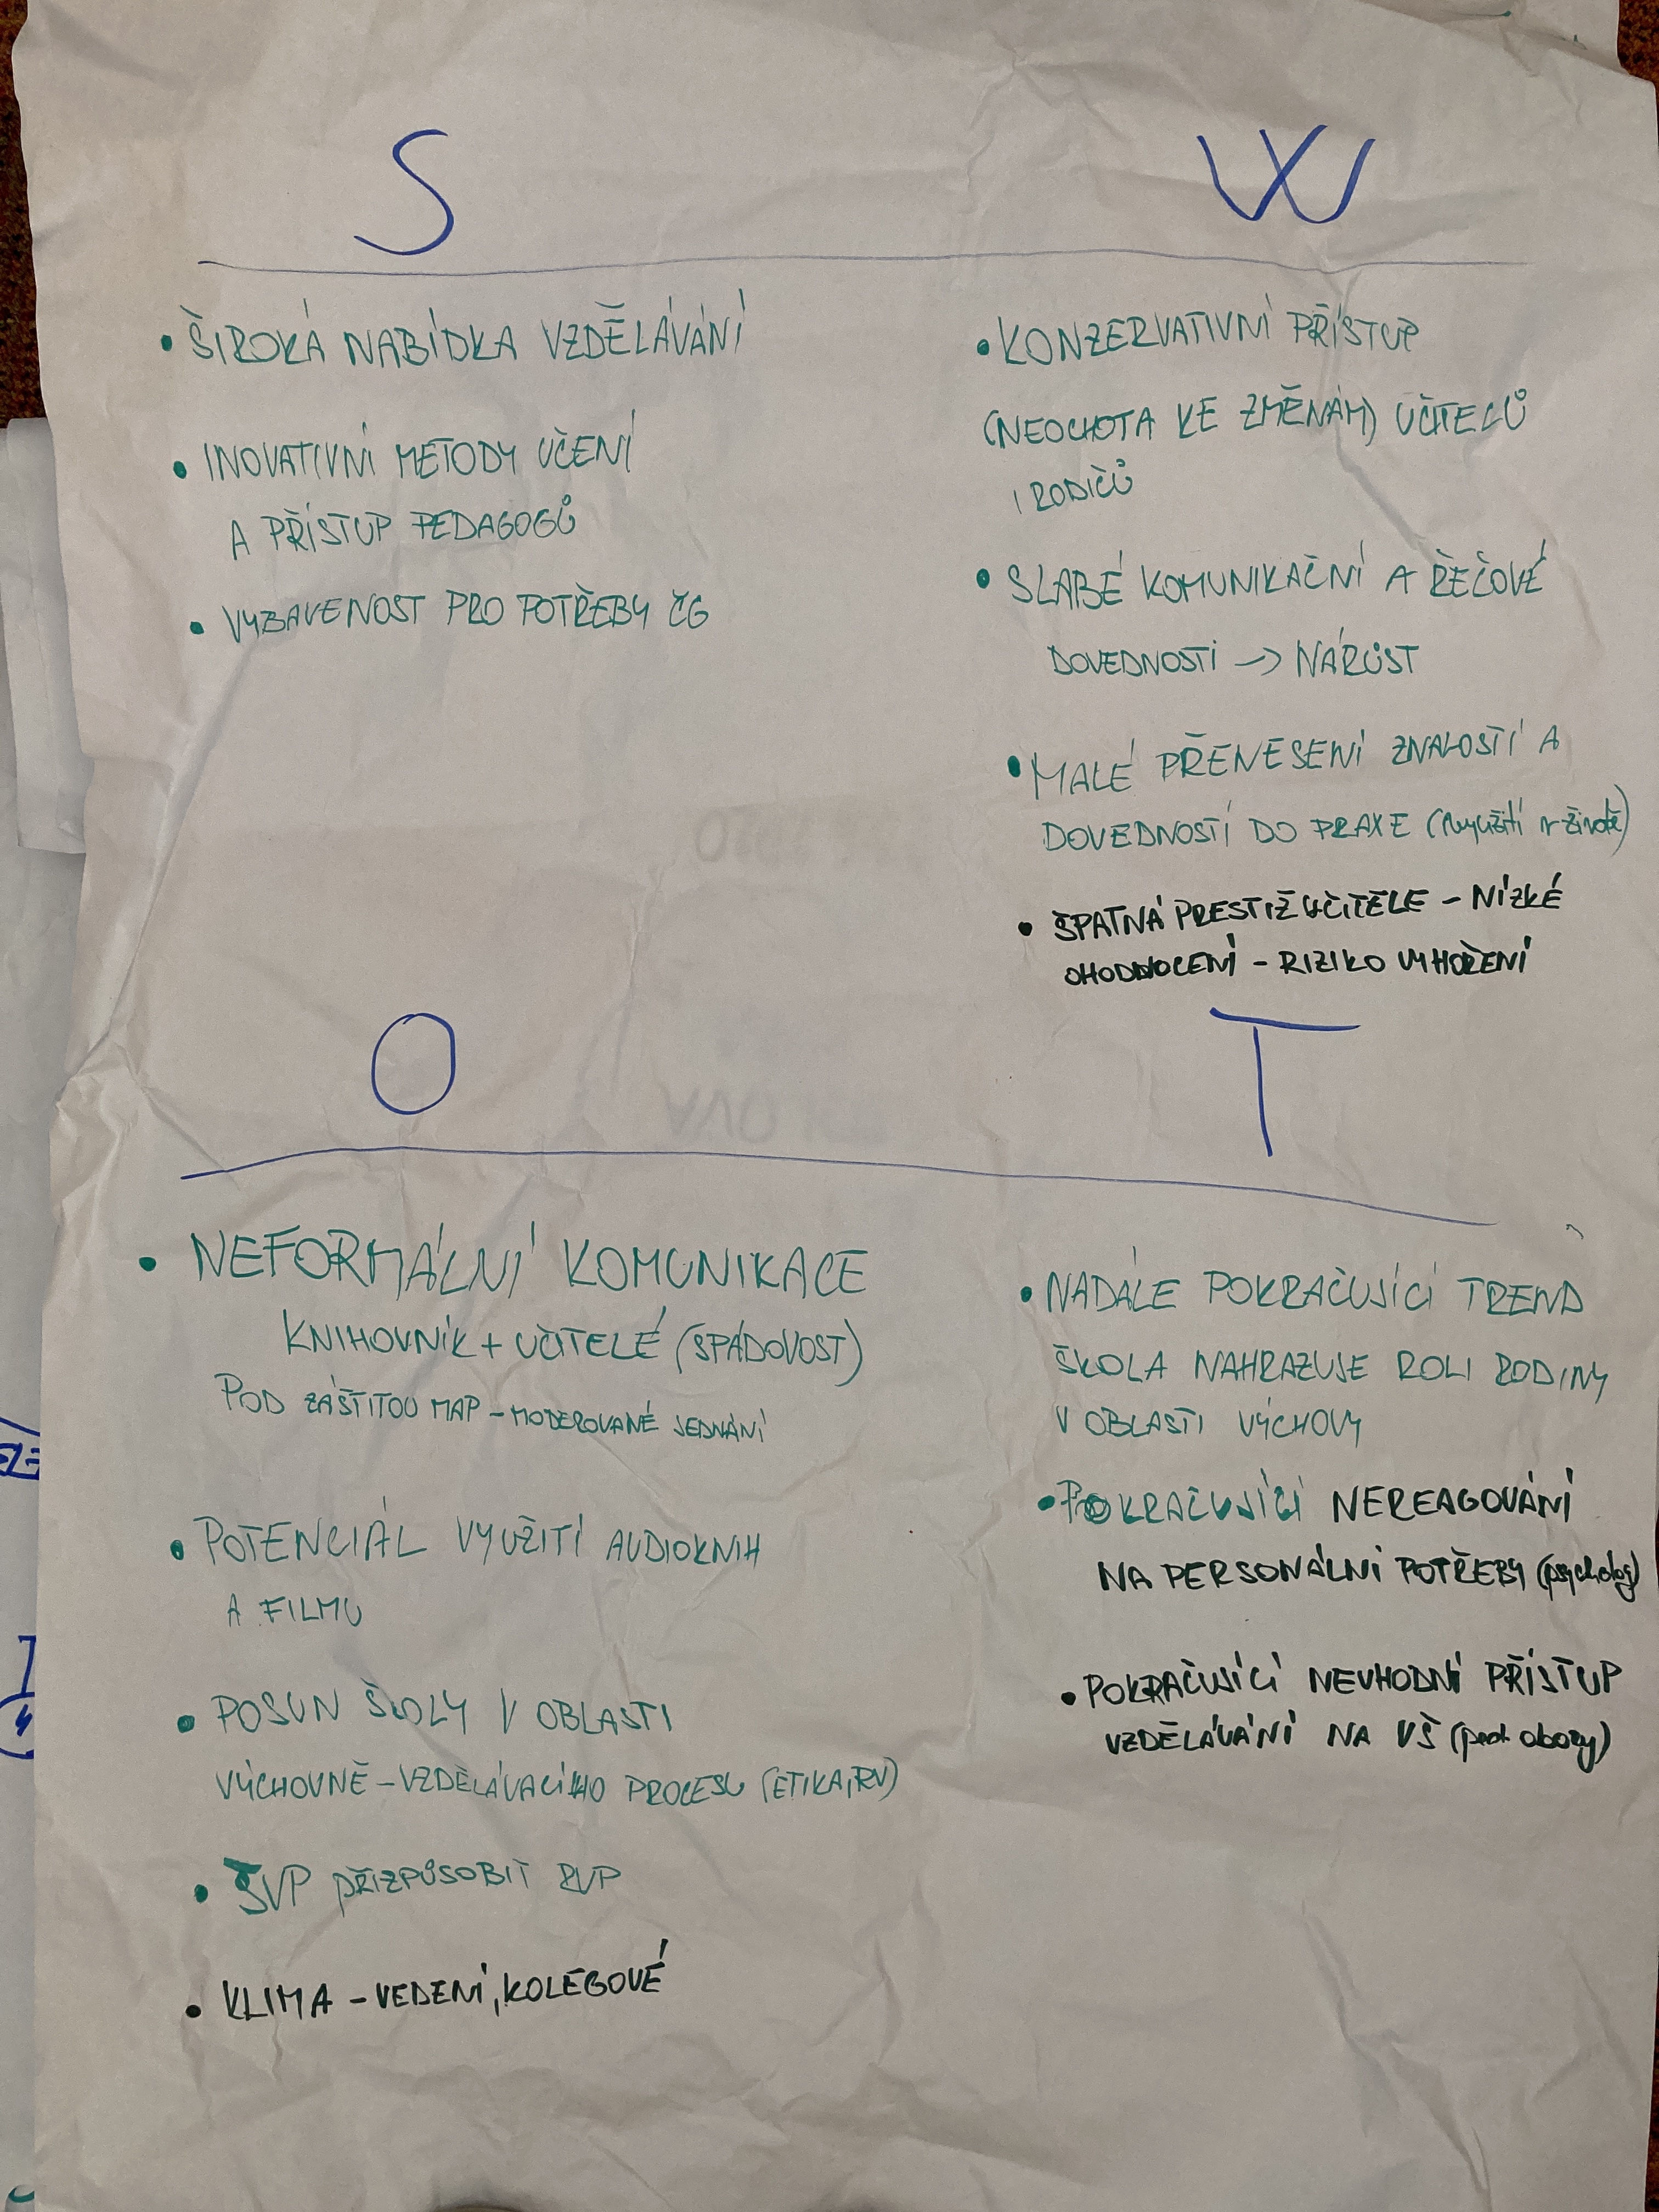 S
• ŠIROKÁ NABÍDKA VZDĚLÁVÁNÍ
• INOVATIVNÍ METODY UČENÍ
A PŘÍSTUP PEDAGOGŮ
• VYBAVENOST PRO POTŘEBY ČG
W
• KONZERVATIVNÍ PŘÍSTUP
(NEOCHOTA KE ZMĚNÁM) UČITELŮ
I RODIČŮ
• SLABÉ KOMUNIKAČNÍ A ŘEČOVÉ
DOVEDNOSTI -> NÁRŮST
• MALÉ PŘENESENÍ ZNALOSTÍ A
DOVEDNOSTÍ DO PRAXE (využití v životě)
• ŠPATNÁ PRESTIŽ UČITELE - NÍZKÉ
OHODNOCENÍ - RIZIKO VYHOŘENÍ
O
• NEFORMÁLNÍ KOMUNIKACE
KNIHOVNÍK + UČITELÉ (SPÁDOVOST)
POD ZÁŠTITOU MAP - MODEROVANÉ JEDNÁNÍ
• POTENCIÁL VYUŽITÍ AUDIOKNIH
A FILMU
• POSUN ŠKOLY V OBLASTI
VÝCHOVNĚ - VZDĚLÁVACÍHO PROCESU (ETIKA, RV)
• ŠVP PŘIZPŮSOBIT RVP
• KLIMA - VEDENÍ, KOLEGOVÉ
T
• NADÁLE POKRAČUJÍCÍ TREND
ŠKOLA NAHRAZUJE ROLI RODINY
V OBLASTI VÝCHOVY
• POKRAČUJÍCÍ NEREAGOVÁNÍ
NA PERSONÁLNÍ POTŘEBY (psycholog)
• POKRAČUJÍCÍ NEVHODNÍ PŘÍSTUP
VZDĚLÁVÁNÍ NA VŠ (ped. obory)